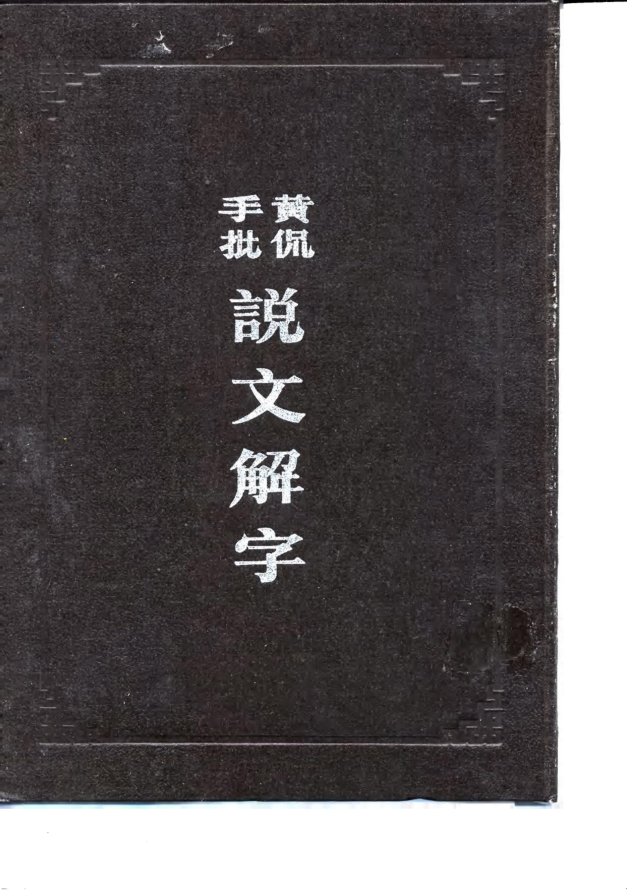 黃侃
手批
説文解字